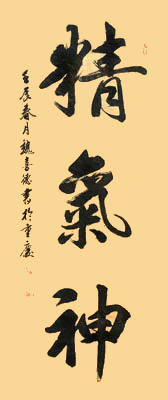 精氣神
壬辰春月魏喜德書於重慶